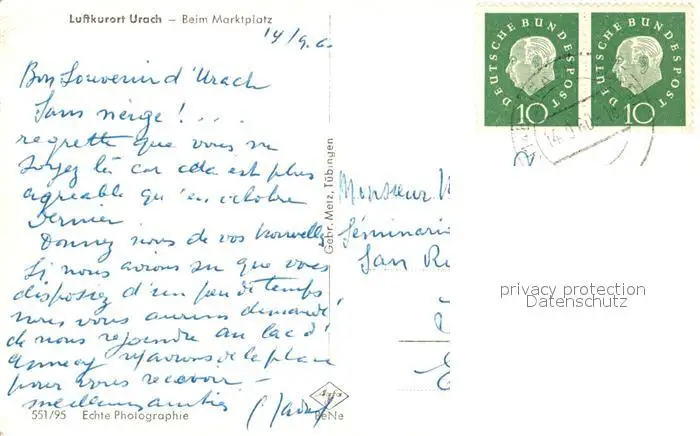 Luftkurort Urach – Beim Marktplatz
14/9.6
Bon Souvenir d'Urach
Sans neige! ...
regrette que vous ne
soyez là car cela est plus
agréable qu'en octobre
dernier
Donnez nous de vos nouvelles
Si nous avions su que vous
disposiez d'un peu de temps
nous vous aurions demandé
de nous rejoindre au lac d'
Annecy n/avions de la place
pour vous recevoir –
meilleures amitiés
551/95 Echte Photographie
Agfa
BeNe
Gebr. Metz, Tübingen
DEUTSCHE BUNDESPOST
10
DEUTSCHE BUNDESPOST
10
14.9.60
Monsieur
Séminari
San R
privacy protection
Datenschutz